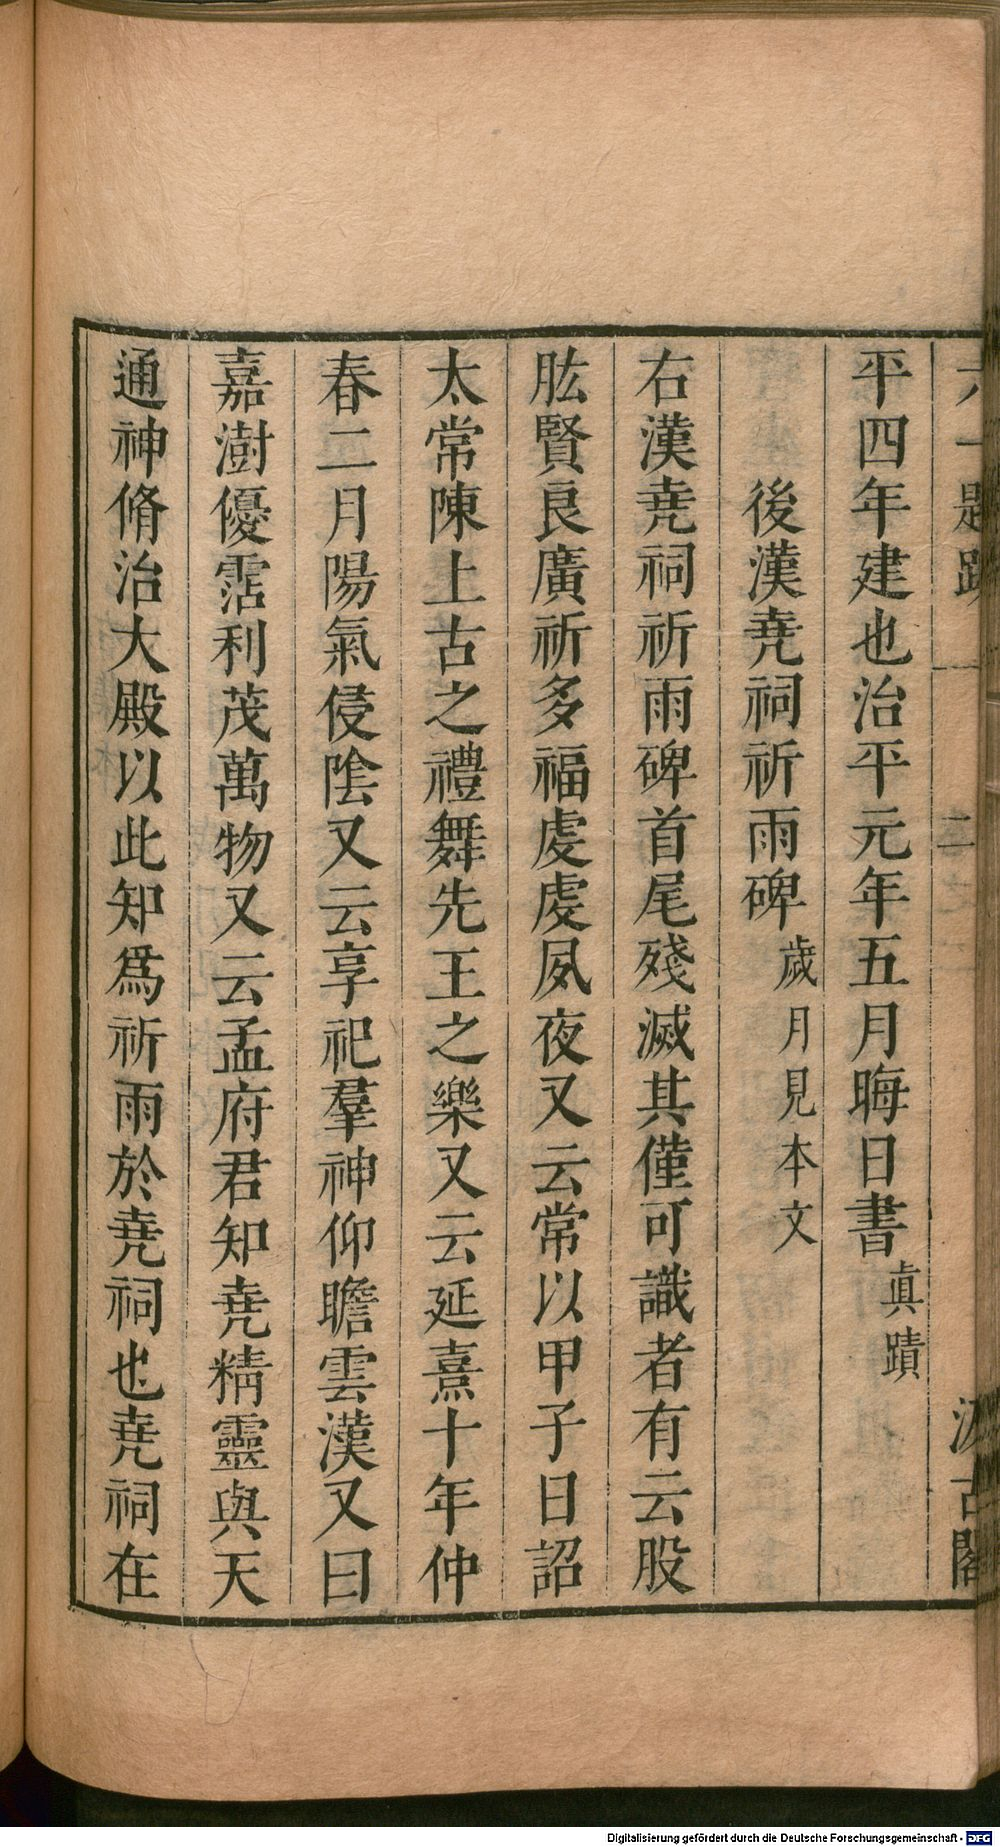 六一題跋
二
汲古閣
平四年建也治平元年五月晦日書眞蹟
後漢堯祠祈雨碑歲月見本文
右漢堯祠祈雨碑首尾殘滅其僅可識者有云股
肱賢良廣祈多福處處夙夜又云常以甲子日詔
太常陳上古之禮舞先王之樂又云延熹十年仲
春二月陽氣侵陰又云享祀羣神仰瞻雲漢又曰
嘉澍優霑利茂萬物又云孟府君知堯精靈與天
通神脩治大殿以此知爲祈雨於堯祠也堯祠在
Digitalisierung gefördert durch die Deutsche Forschungsgemeinschaft - DFG